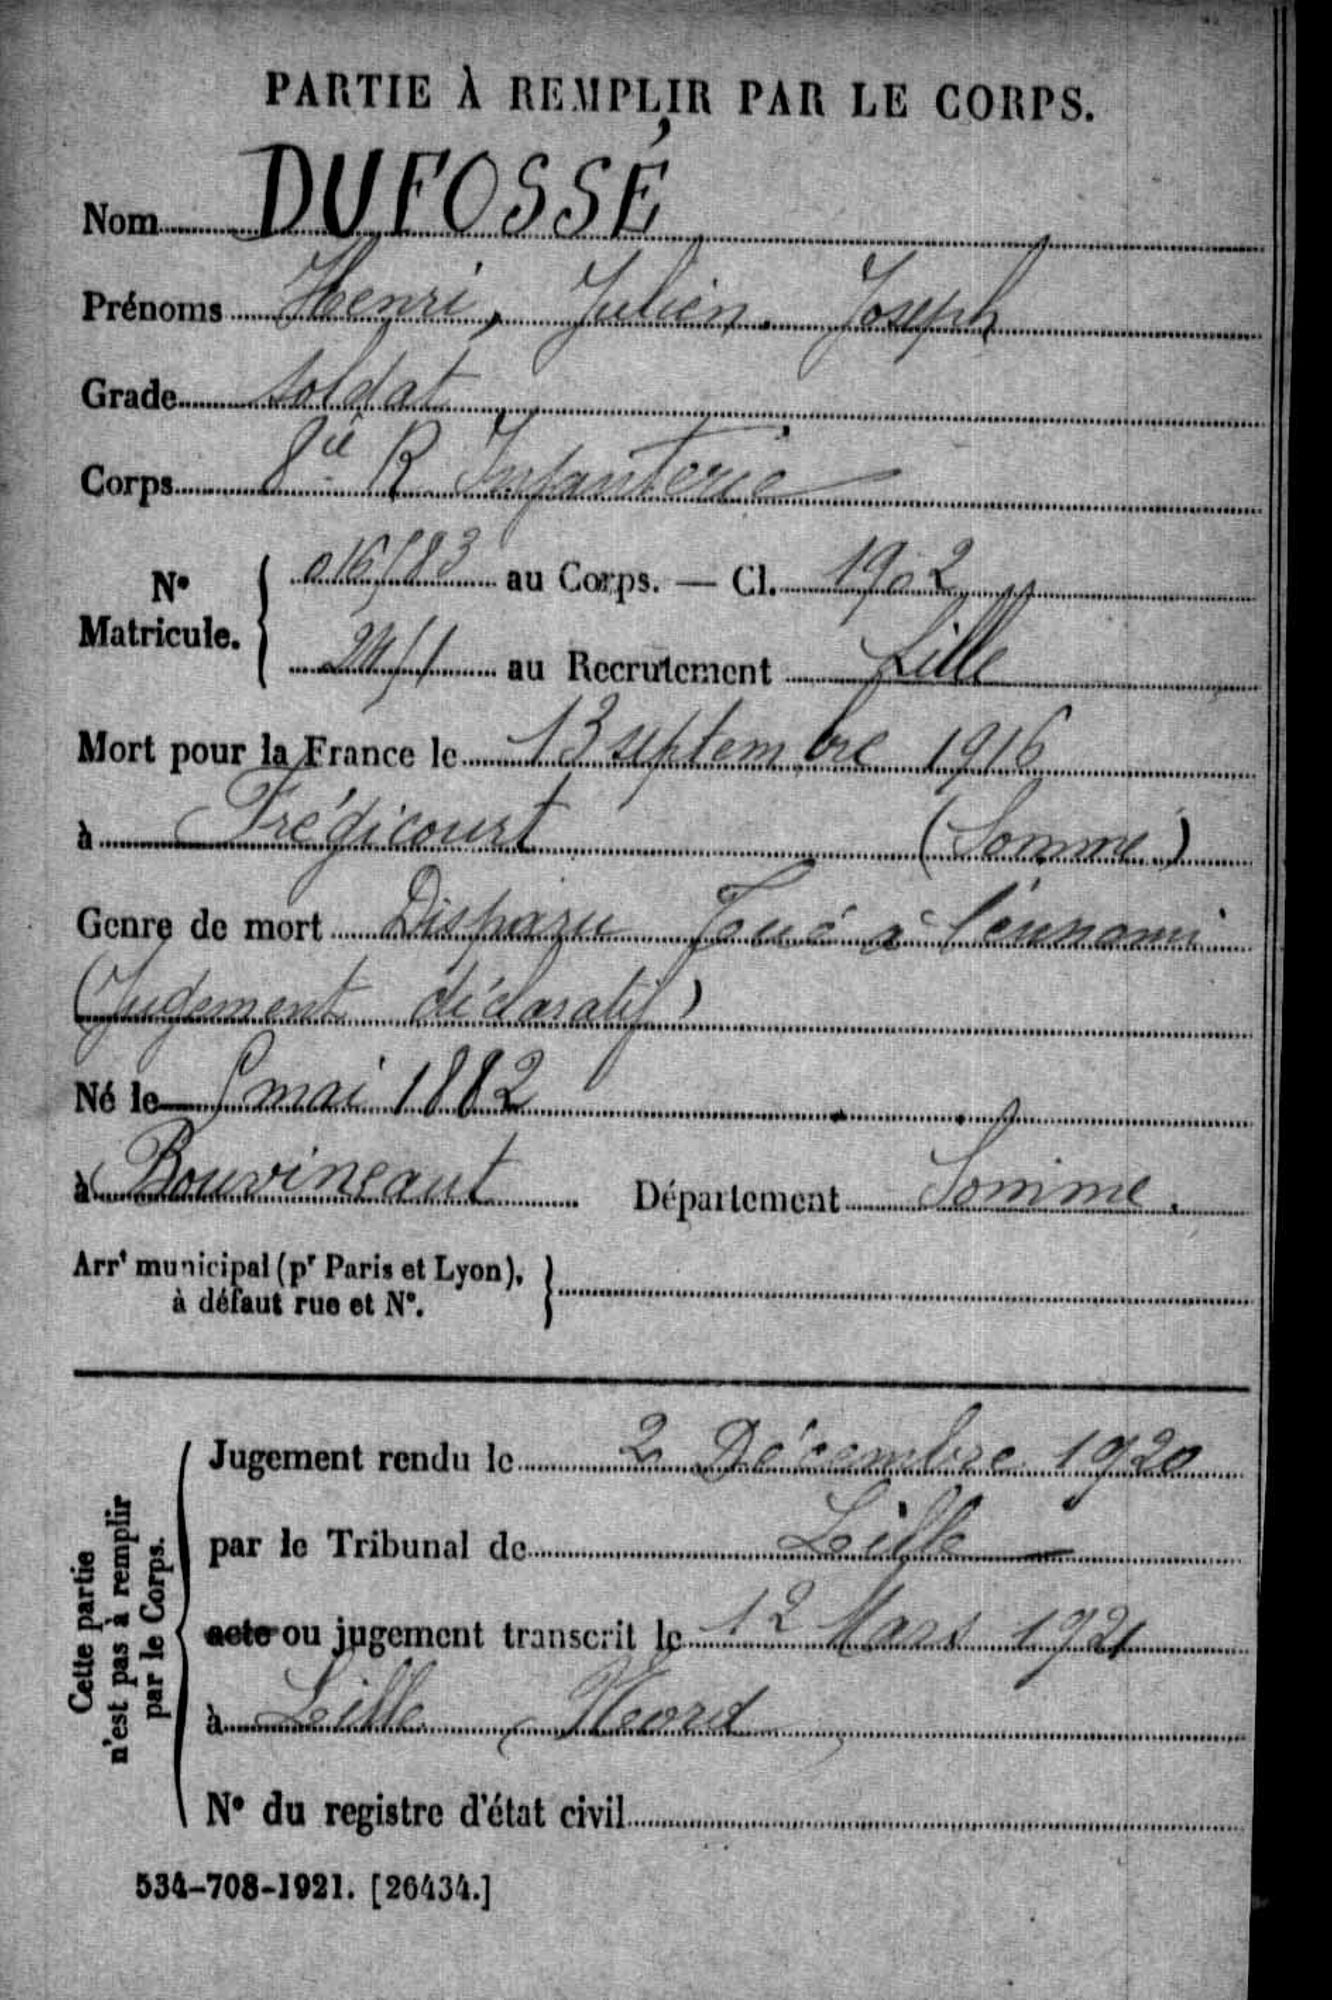 PARTIE À REMPLIR PAR LE CORPS.
Nom DUFOSSÉ
Prénoms Henri, Julien, Joseph
Grade soldat
Corps 8ie R Infanterie
No Matricule. au Corps. — Cl. 1902
au Recrutement Lille
Mort pour la France le 13 septembre 1916
à Frégicourt (Somme)
Genre de mort Disparu Tué à l'ennemi
(Jugement déclaratif)
Né le mai 1882
à Département Somme.
Arrt municipal (pr Paris et Lyon), à défaut rue et No.
Cette partie n'est pas à remplir par le Corps.
Jugement rendu le 2 Décembre 1920
par le Tribunal de Lille
acte ou jugement transcrit le 12 Mars 1921
à Lille (Nord)
No du registre d'état civil
534-708-1921. [26434.]